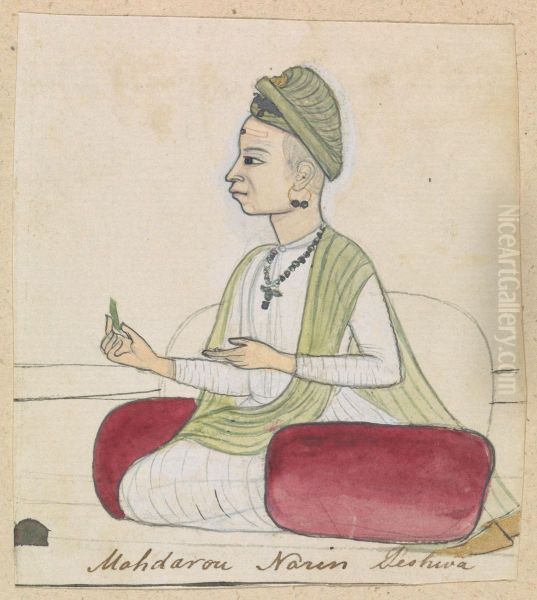 Mahdarou Narin Peshwa
NiceArtGallery.com